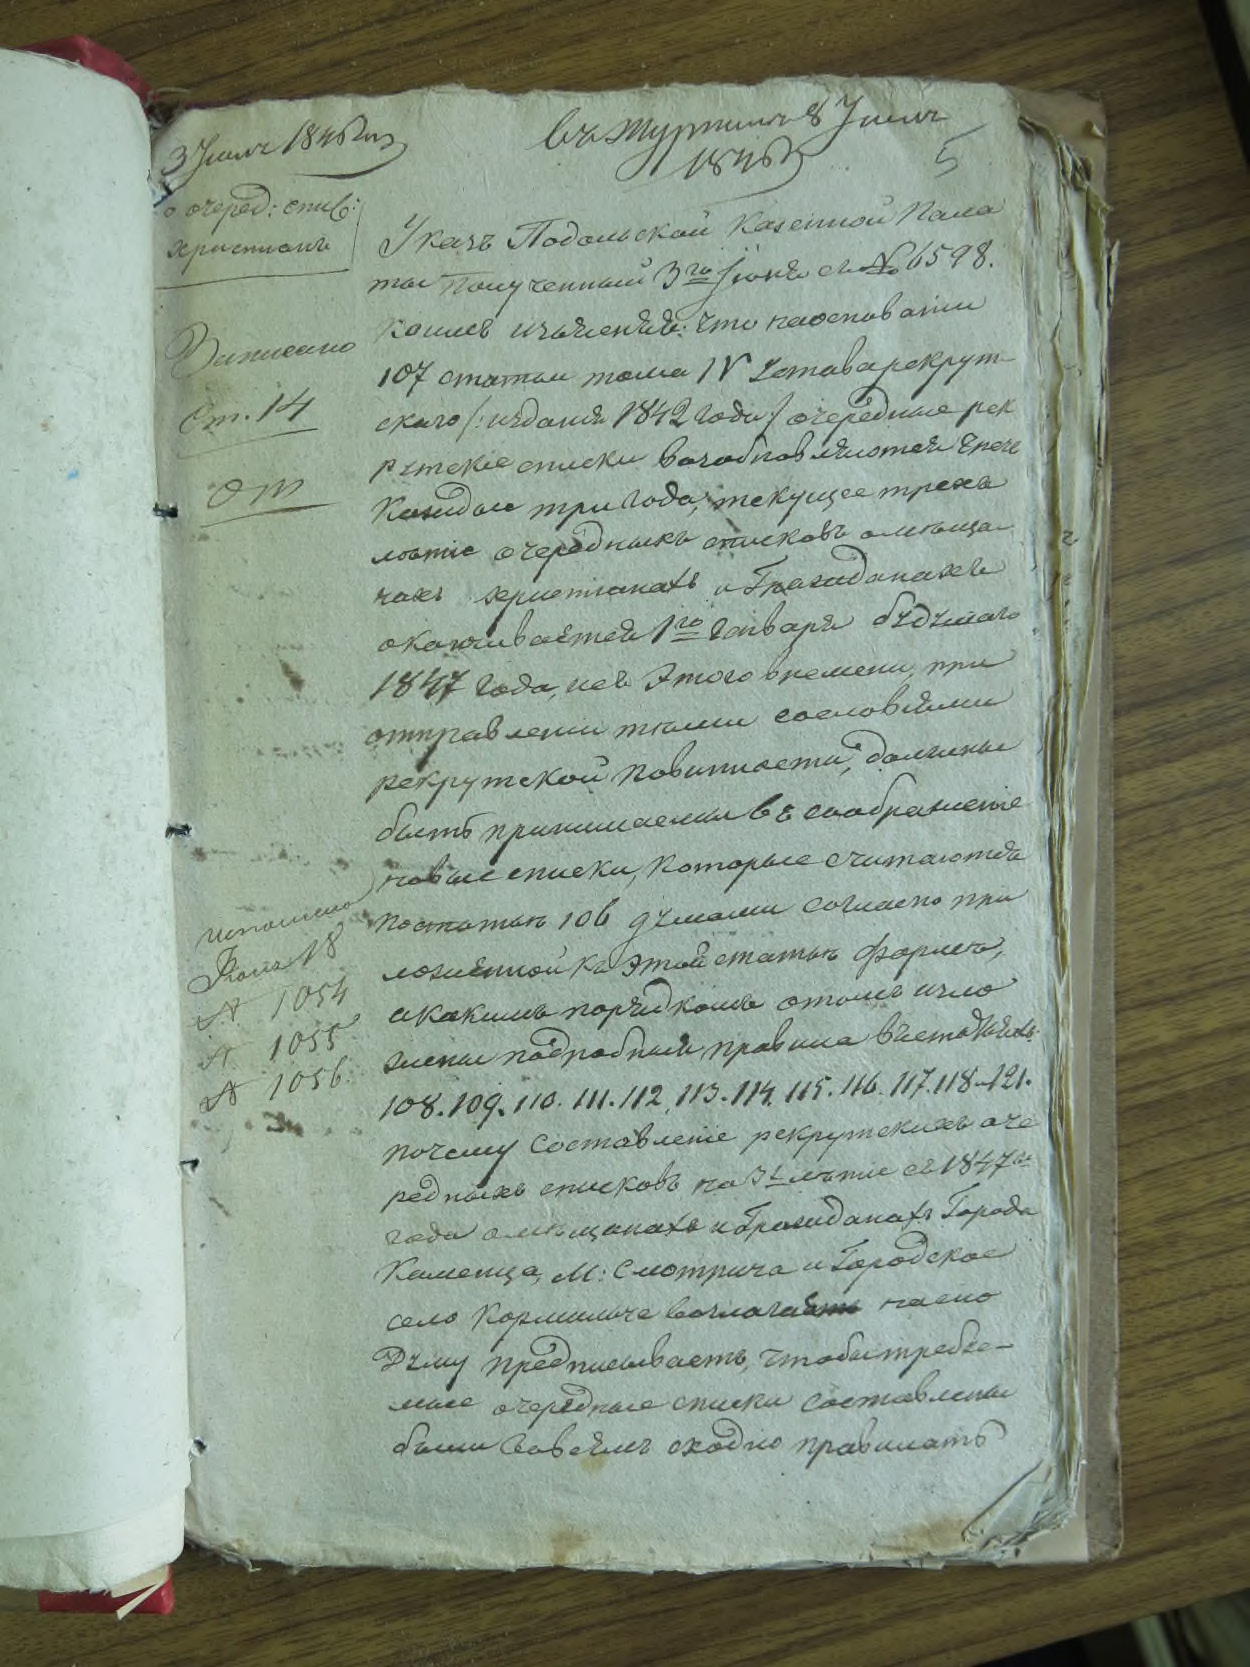 3 Июля 1846 го
въ журналъ 8 Июля
1846
5
о очеред: спис:
христіанъ
Записано
Ст. 14
Указъ Подольской Казенной Пала
ты полученный 3го Июня съ № 6598.
коимъ изъясняя: что наосновании
107 статьи тома IV Устава рекрут-
скаго /: издания 1842 года / очередные рек
рутскіе списки возобновляются чрезъ
каждые три года, текущее трехъ
лѣтіе очередныхъ списковъ омѣща-
нахъ христіанахъ и Гражданахъ
оканчивается 1го Генваря будущаго
1847 года, исъ этого времени, при
отправленіи тѣми сословіями
рекрутской повинности, должны
быть принимаемы въ соображеніе
новые списки, которые считаются
постатьѣ 106 думами согласно при
ложенной къ этой статьѣ формѣ,
акакимъ порядкомъ отомъ изло
жены подробныя правила въстатьяхъ
108. 109. 110. 111. 112. 113. 114. 115. 116. 117. 118. 121.
почему составленіе рекрутскихъ оче
редныхъ списковъ на 3х лѣтіе съ 1847го
года омѣщанахъ и Гражданахъ Города
Каменца, М: Смотрича и Городское
село Кормильче возлагаетъ насію
Думу предписываетъ, чтобы требуе-
мые очередные списки составлены
были вовсемъ сходно правиламъ
исполнено
Июля 18
№ 1054
№ 1055
№ 1056